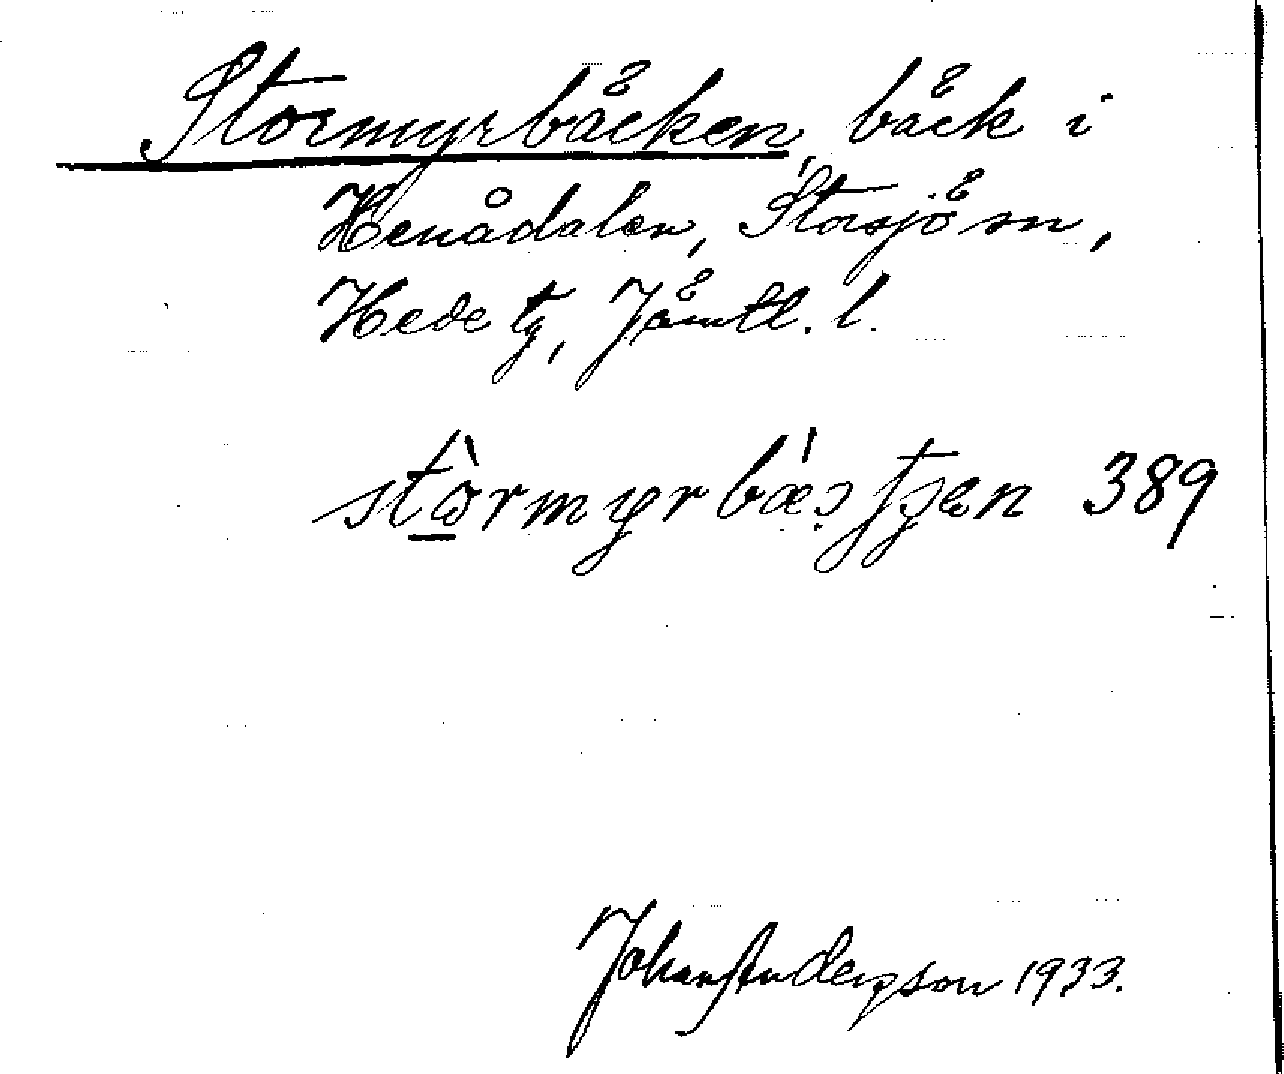 Stormyrbäcken, bäck i
Henådalen, Storsjö sn,
Hede tg, Jämtl. l.
389
Johan Anderson 1933.